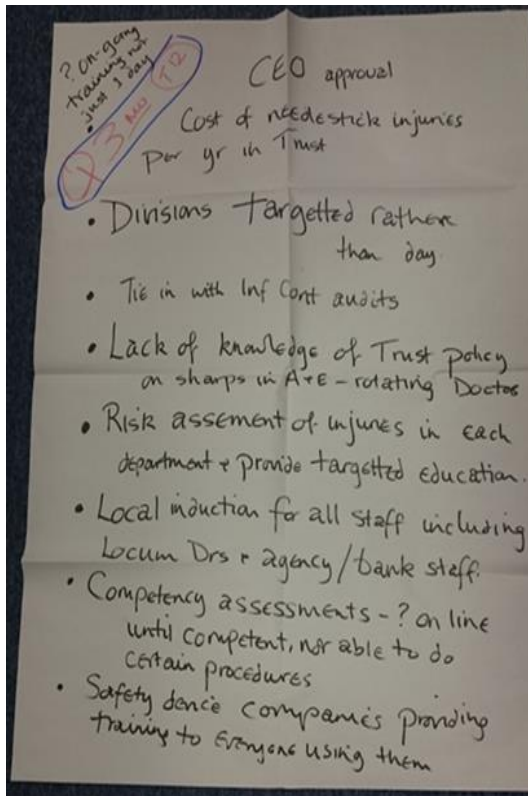 ? On-going
training not
just 1 day
Q3
CEO approval
Cost of needestick injuries
per yr in Trust
• Divisions targetted rather
than day.
• Tie in with Inf Cont audits
• Lack of knowledge of Trust policy
on sharps in A+E - rotating Doctos
• Risk assement of injures in each
department + provide targetted education.
• Local induction for all staff including
Locum Drs + agency/bank staff.
• Competency assessments - ? on line
until competent, not able to do
certain procedures
• Safety device companies providing
training to everyone using them